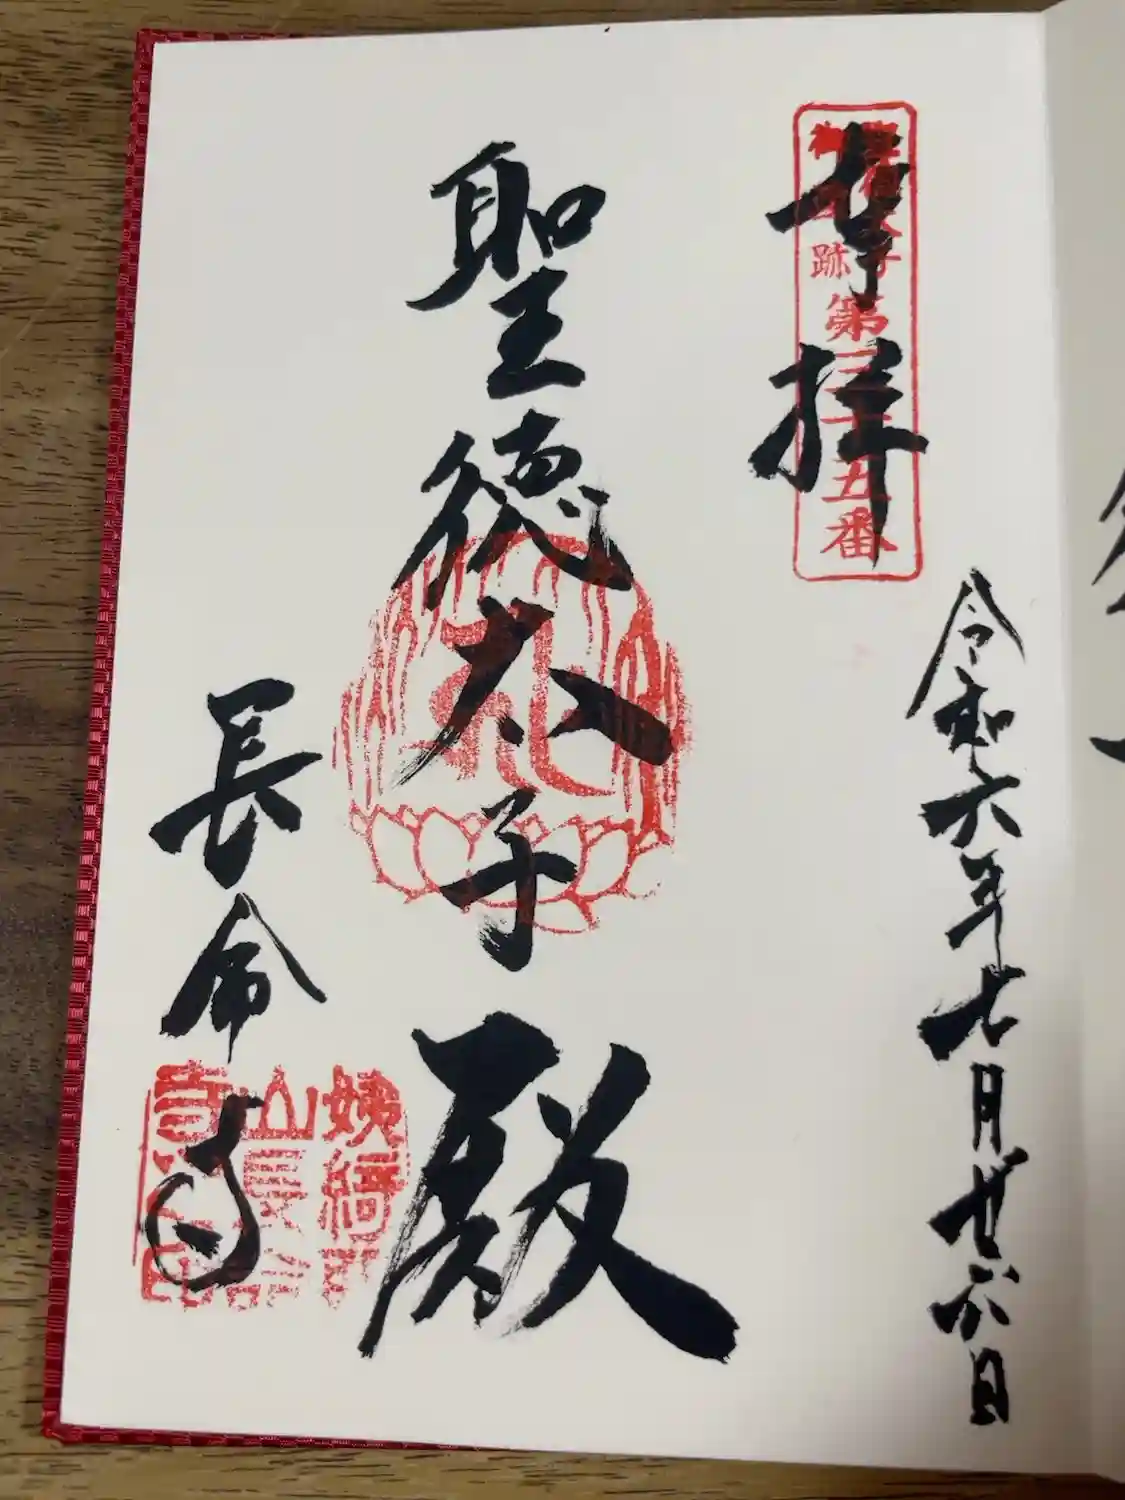 奉拝
聖徳太子
御遺跡
第三十五番
令和六年七月廿六日
聖徳太子殿
長命寺
姨綺
山長命
寺